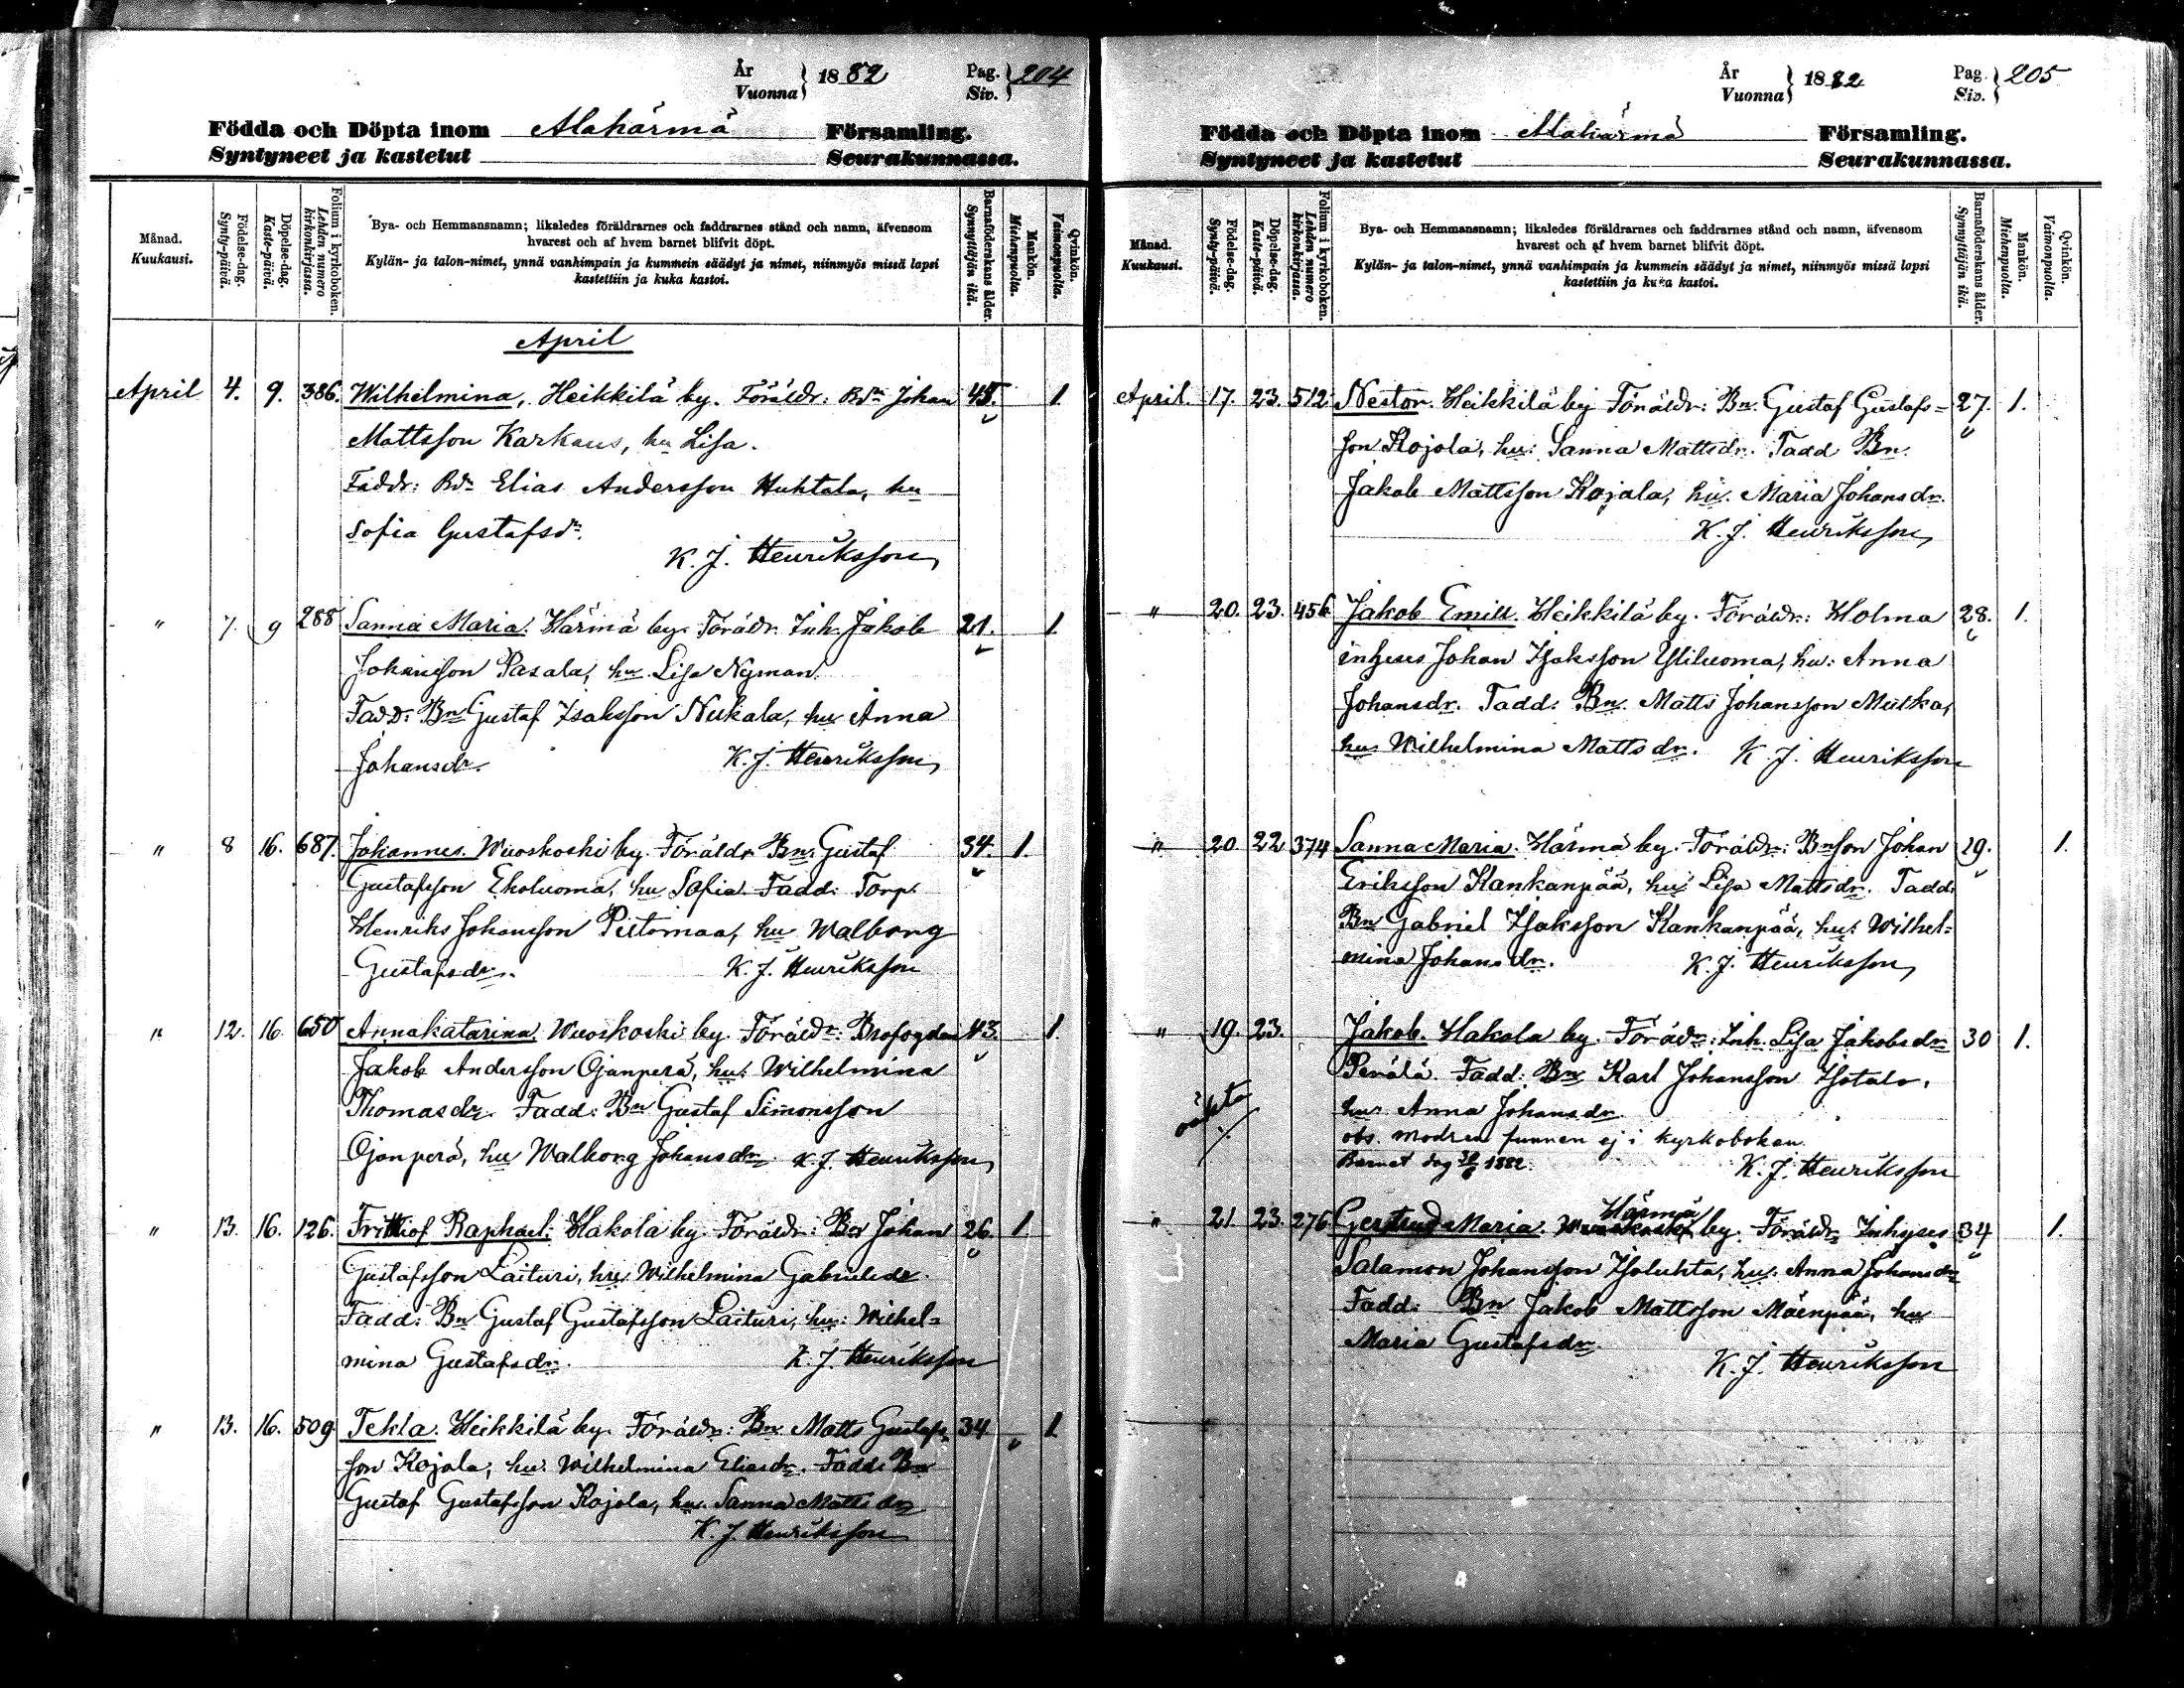 År
Vuonna } 1882 Pag. Siv. } 204
Födda och Döpta inom Alahärmä Församling.
Syntyneet ja kastetut Seurakunnassa.
Månad.
Kuukausi.
Födelse-dag.
Synty-päivä.
Döpelse-dag.
Kaste-päivä.
Folium i kyrkoboken.
Lehden numero
kirkonkirjassa.
Bya- och Hemmansnamn; likaledes föräldrarnes och faddrarnes stånd och namn, äfvensom
hvarest och af hvem barnet blifvit döpt.
Kylän- ja talon-nimet, ynnä vanhimpain ja kummein säädyt ja nimet, niinmyös missä lapsi
kastettiin ja kuka kastoi.
Barnaföderskans ålder.
Synnyttäjän ikä.
Mankön.
Miehenpuolta.
Qvinkön.
Vaimonpuolta.
April
April 4. 9. 386. Wilhelmina, Heikkilä by. Föräldr: Bdn Johan 45. 1.
Mattsson Karkaus, hu Lisa.
Faddr: Bdn Elias Andersson Huhtala, hu
Sofia Gustafsdr.
K. J. Henriksson
" 7. 9 288 Sanna Maria. Härmä by. Föräldr. Inh. Jakob 21. 1
Johansson Pasala, hu Lisa Nyman.
Fadd: Bn Gustaf Isaksson Neukala, hu Anna
Johansdr. K. J. Henriksson
" 8 16. 687. Johannes. Wuoskoski by. Föräldr Bn: Gustaf 34. 1.
Gustafsson Ekoluoma, hu Sofia. Fadd: Torp.
Henriks Johansson Peitomaa, hu Walborg
Gustafsdr. K. J. Henriksson
" 12. 16. 650 Annakatarina. Wuoskoski by. Föräldr: Brofogden 43. 1.
Jakob Andersson Ojanperä, hu: Wilhelmina
Thomasdr. Fadd: Bn Gustaf Simonsson
Ojanperä, hu Walborg Johansdr. K. J. Henriksson
" 13. 16. 126. Frithiof Raphael. Hakola by. Föräldr: Bn Johan 26. 1
Gustafsson Laituri, hu: Wilhelmina Gabrielsdr.
Fadd: Bn Gustaf Gustafsson Laituri, hu: Wilhel=
mina Gustafsdr. K. J. Henriksson
" 13. 16. 509. Tekla. Heikkilä by. Föräldr: Bn Matts Gustafs= 34. 1
son Kojola, hu: Wilhelmina Eliasdr. Fadd: Bn
Gustaf Gustafsson Kojola, hu. Sanna Mattsdr
K. J. Henriksson
År
Vuonna } 1882 Pag. Siv. } 205
Födda och Döpta inom Alahärmä Församling.
Syntyneet ja kastetut Seurakunnassa.
Månad.
Kuukausi.
Födelse-dag.
Synty-päivä.
Döpelse-dag.
Kaste-päivä.
Folium i kyrkoboken.
Lehden numero
kirkonkirjassa.
Bya- och Hemmansnamn; likaledes föräldrarnes och faddrarnes stånd och namn, äfvensom
hvarest och af hvem barnet blifvit döpt.
Kylän- ja talon-nimet, ynnä vanhimpain ja kummein säädyt ja nimet, niinmyös missä lapsi
kastettiin ja kuka kastoi.
Barnaföderskans ålder.
Synnyttäjän ikä.
Mankön.
Miehenpuolta.
Qvinkön.
Vaimonpuolta.
April. 17. 23. 512 Nestor. Heikkilä by Föräldr: Bn. Gustaf Gustafs= 27. 1.
son Kojola, hu: Sanna Mattsdr. Fadd Bn.
Jakob Mattsson Kojala, hu. Maria Johansdr.
K. J. Henriksson
" 20. 23. 456 Jakob Emill. Heikkilä by. Föräldr: Holma 28. 1.
inhyses Johan Isaksson Yliluoma, hu: Anna
Johansdr. Fadd: Bn. Matts Johansson Mutka,
hu: Wilhelmina Mattsdr. K. J. Henriksson
" 20. 22 374 Sanna Maria. Härmä by. Föräldr: Bnson Johan 29. 1.
Eriksson Kankanpää, hu: Lisa Mattsdr. Fadd:
Bn Gabriel Isaksson Kankanpää, hu: Wilhel=
mina Johansdr. K. J. Henriksson
" 19. 23. Jakob. Hakola by. Föräldr: Inh. Lisa Jakobsdr 30 1.
Perälä. Fadd: Bn Karl Johansson Isotalo,
oäkta hu. Anna Johansdr
obs. modren funnen ej i kyrkoboken.
Barnet dog 30/6 1882. K. J. Henriksson
Härmä
" 21. 23. 276 Gertrud Maria. Wuoskoski by. Föräldr Inhyses 34 1.
Salamon Johansson Isoluhta, hu: Anna Johansdr
Fadd: Bn Jakob Mattsson Mäenpää, hu
Maria Gustafsdr.
K. J. Henriksson